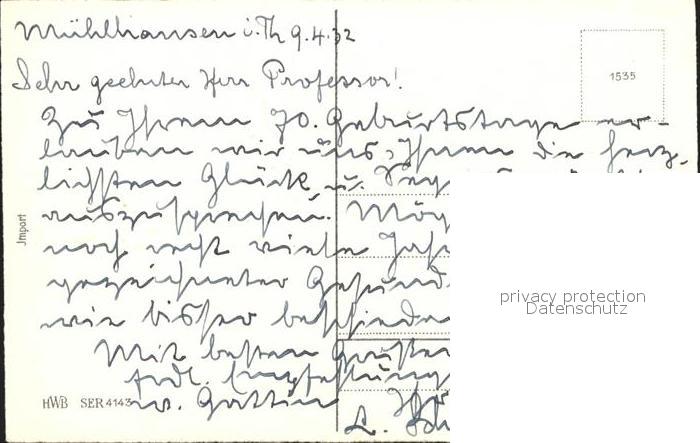 Mühlhausen i. Th 9.4.32
Sehr geehrter Herr Professor!
1535
Zu Ihrem 70. Geburtstage er-
lauben wir uns, Ihnen die herz-
lichsten Glück u.
auszusprechen.
noch recht viele
gezeichneter
wie bisher
Mit besten Grüßen
frdl. Empfehlung
w. Gattin
L.
Import
HWB SER 4143
privacy protection
Datenschutz